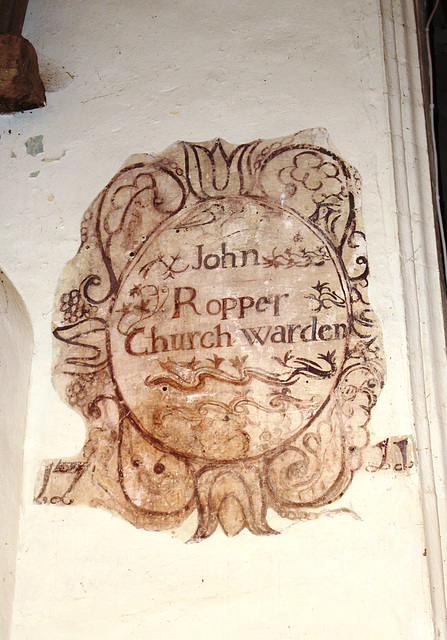 John
Ropper
Church warden
17 11